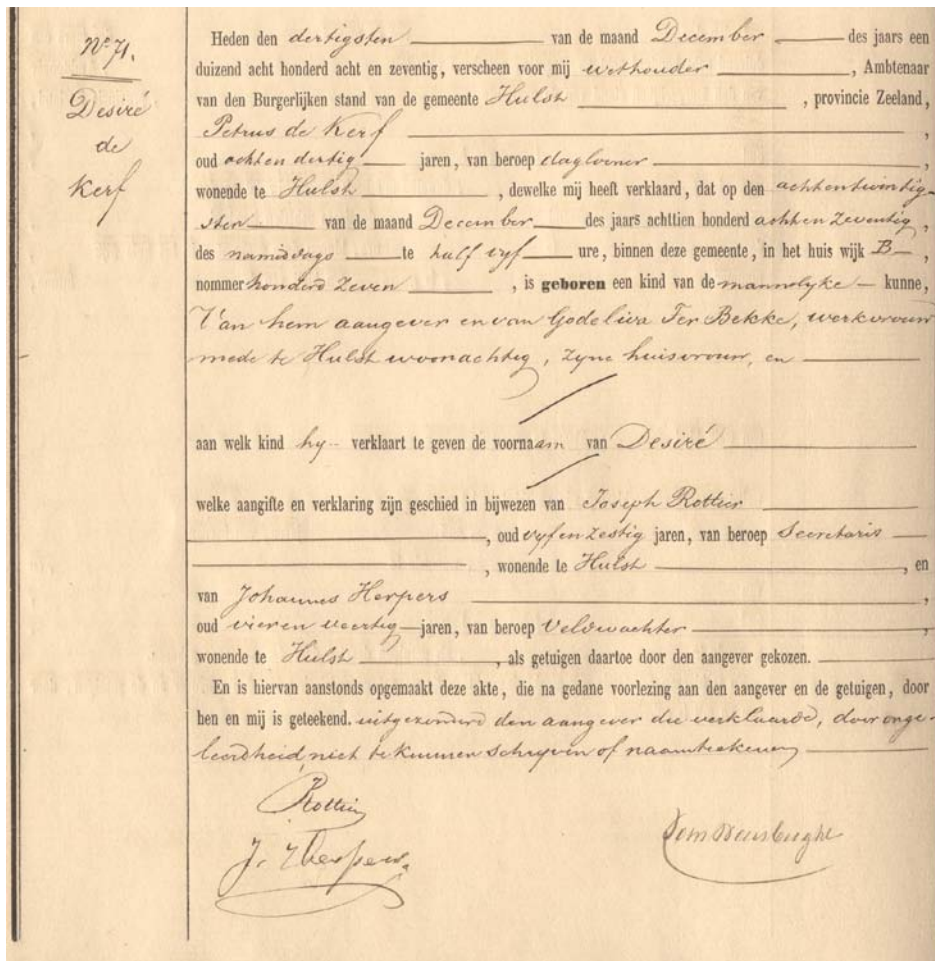 No 71.
Desiré
de
Kerf
Heden den dertigsten van de maand December des jaars een
duizend acht honderd acht en zeventig, verscheen voor mij wethouder, Ambtenaar
van den Burgerlijken stand van de gemeente Hulst, provincie Zeeland,
Petrus de Kerf,
oud acht en dertig jaren, van beroep daglooner,
wonende te Hulst, dewelke mij heeft verklaard, dat op den achtentwintig-
sten van de maand December des jaars achttien honderd acht en zeventig,
des namiddags te half vyf ure, binnen deze gemeente, in het huis wijk B,
nommer honderd zeven, is geboren een kind van de mannelyke kunne,
Van hem aangever en van Godeliva Ter Bekke, werkvrouw
mede te Hulst woonachtig, zyne huisvrouw, en
aan welk kind hy verklaart te geven de voornaam van Desiré
welke aangifte en verklaring zijn geschied in bijwezen van Joseph Rottier
, oud vyf en zestig jaren, van beroep Secretaris
, wonende te Hulst, en
van Johannes Herpers,
oud vier en veertig jaren, van beroep Veldwachter,
wonende te Hulst, als getuigen daartoe door den aangever gekozen.
En is hiervan aanstonds opgemaakt deze akte, die na gedane voorlezing aan den aangever en de getuigen, door
hen en mij is geteekend. uitgezonderd den aangever die verklaarde, door onge-
leerdheid, niet te kunnen schryven of naamteekenen
Rottier
J. Herpers.